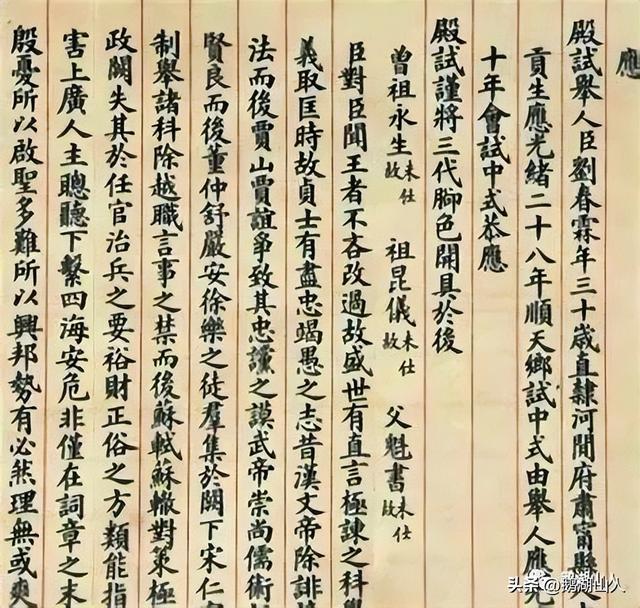 應
殿試舉人臣劉春霖年三十歲直隸河間府肅甯縣人
貢生應光緒二十八年順天鄉試中式由舉人應光
十年會試中式恭應
殿試謹將三代腳色開具於後
曾祖永生未仕故 祖昆儀未仕故 父魁書未仕故
臣對臣聞王者不吝改過故盛世有直言極諫之科
義取匡時故貞士有盡忠竭愚之志昔漢文帝除誹
法而後賈山賈誼爭致其忠讜之謨武帝崇尚儒術
賢良而後董仲舒嚴安徐樂之徒羣集於闕下宋仁
制舉諸科除越職言事之禁而後蘇軾蘇轍對策極
政闕失其於任官治兵之要裕財正俗之方類能指
害上廣人主聰聽下繫四海安危非僅在詞章之末
殷憂所以啟聖多難所以興邦勢有必然理無或爽
头条@鹅湖山人